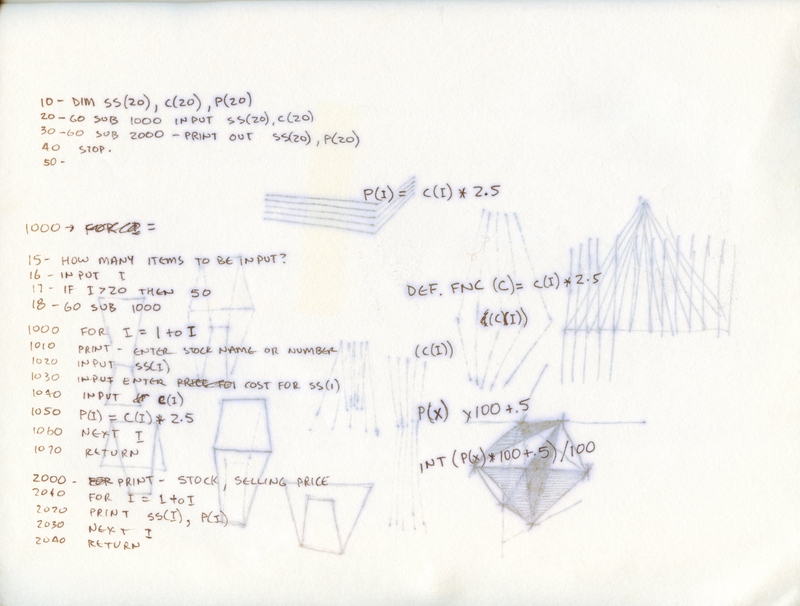 10 - DIM SS(20), C(20), P(20)
20 - GO SUB 1000 INPUT SS(20), C(20)
30 - GO SUB 2000 - PRINT OUT SS(20), P(20)
40 STOP.
50 -
P(I) = C(I) * 2.5
1000 → =
15 - HOW MANY ITEMS TO BE INPUT?
16 - INPUT I
17 - IF I > 20 THEN 50
18 - GO SUB 1000
DEF. FNC (C) = C(I) * 2.5
((C(I))
(C(I))
1000 FOR I = 1 to I
1010 PRINT - ENTER STOCK NAME OR NUMBER
1020 INPUT SS(I)
1030 INPUT ENTER PRICE FOR COST FOR SS(1)
1040 INPUT C(I)
1050 P(I) = C(I) * 2.5
1060 NEXT I
1070 RETURN
P(X) y100 + .5
INT (P(X) * 100 + .5) / 100
2000 - FOR PRINT - STOCK, SELLING PRICE
2010 FOR I = 1 to I
2020 PRINT SS(I), P(I)
2030 NEXT I
2040 RETURN